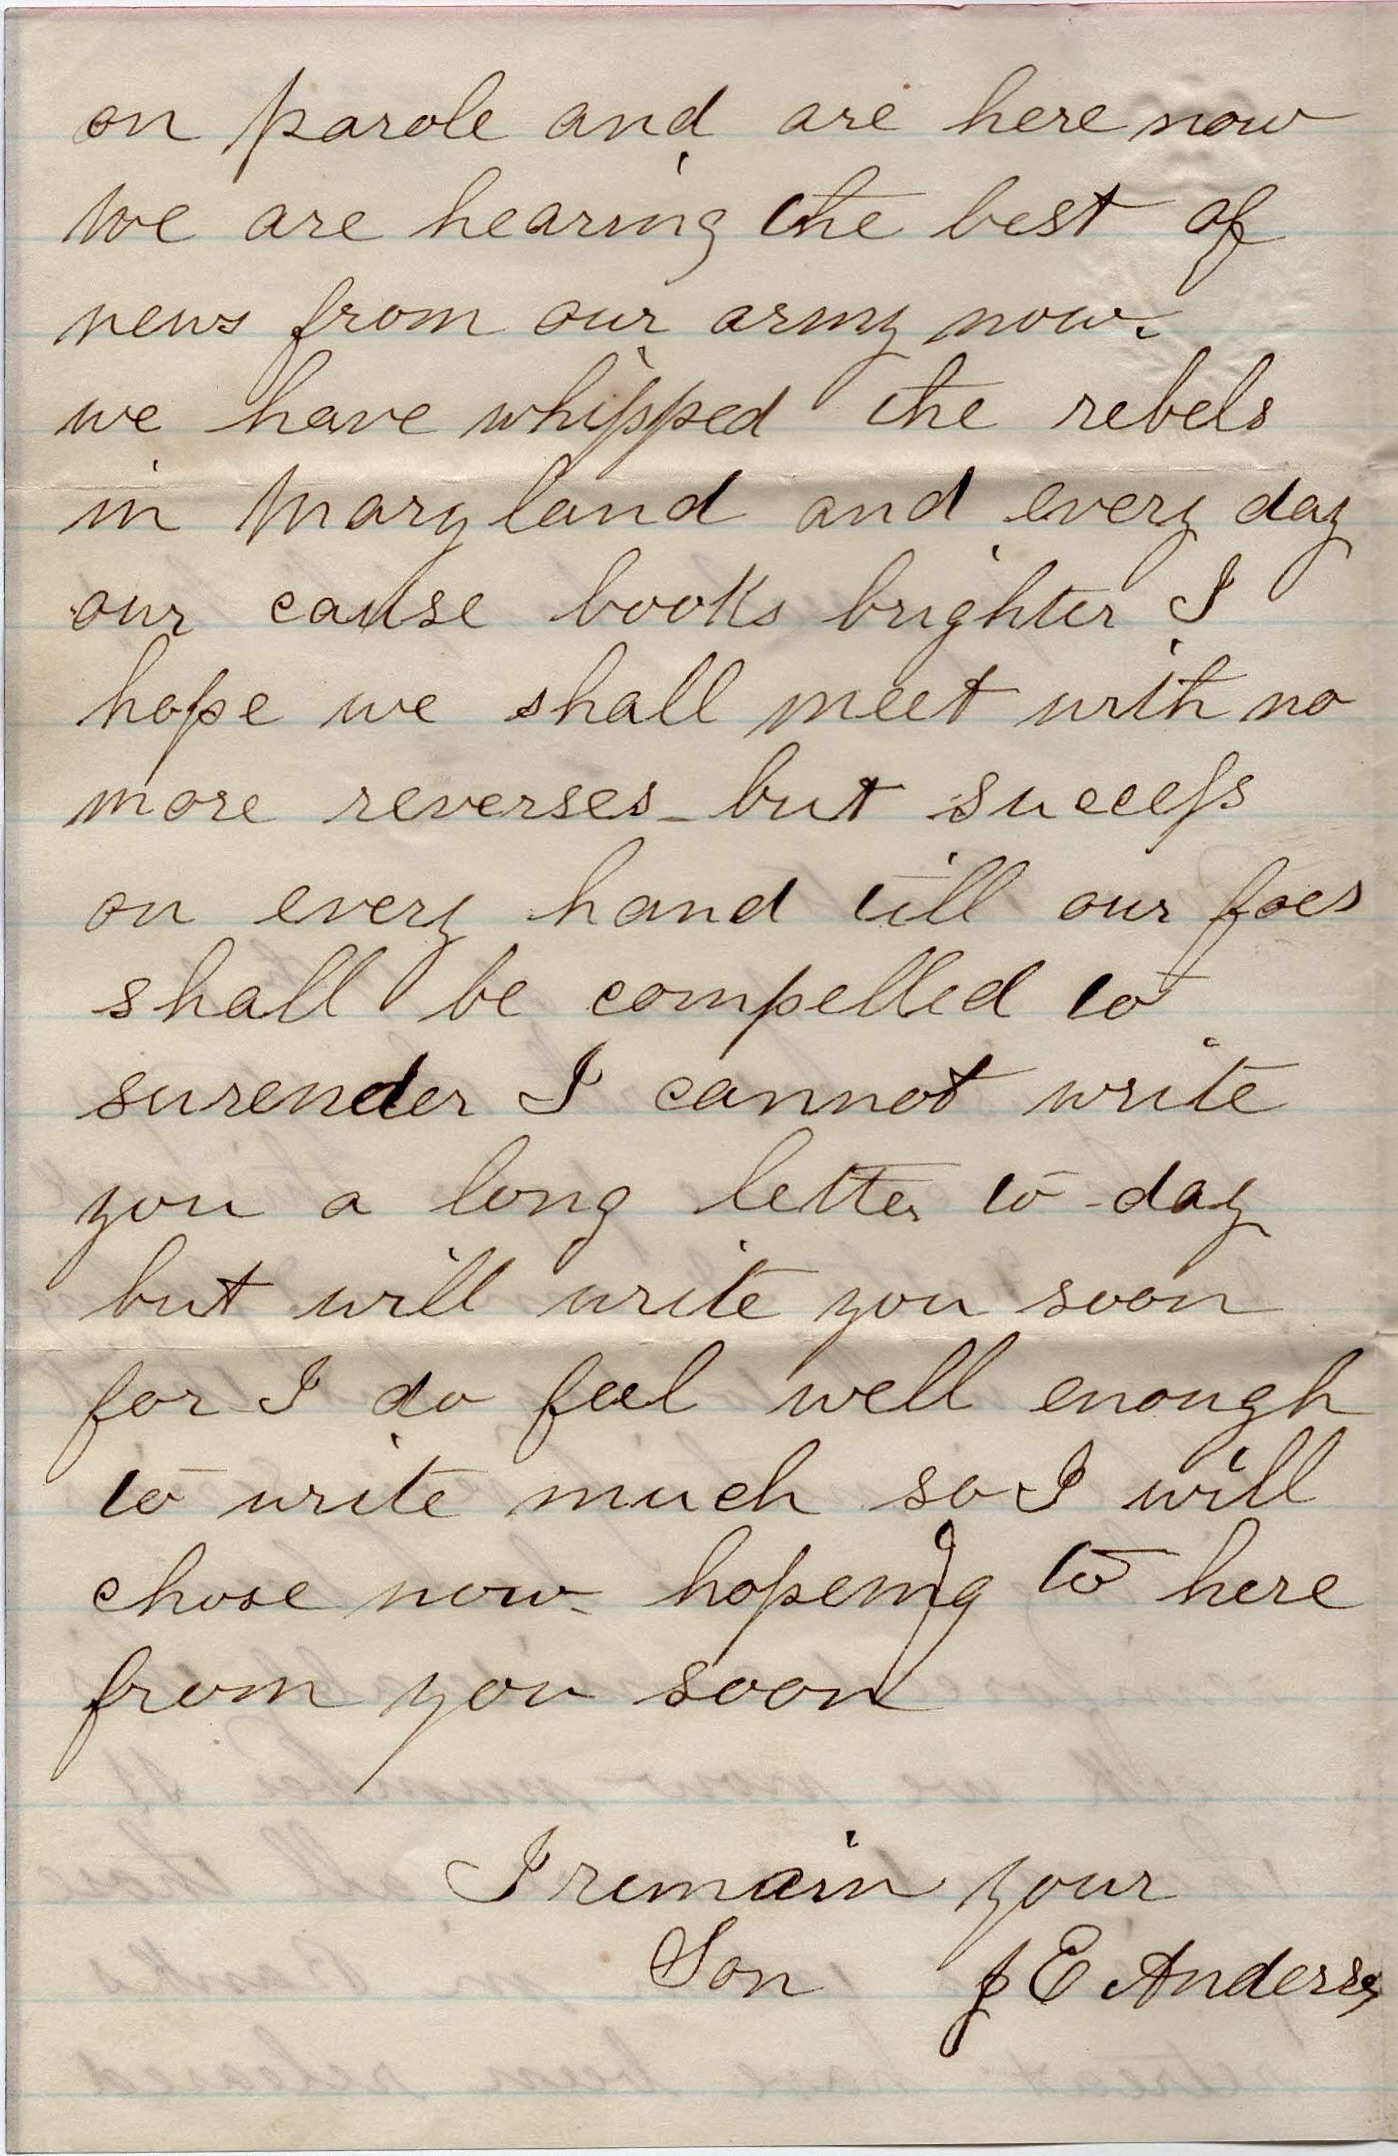 on parole and are here now
We are hearing the best of
news from our army now.
we have whipped the rebels
in Maryland and every day
our cause books brighter I
hope we shall meet with no
more reverses - but success
on every hand till our foes
shall be compelled to
surender I cannot write
you a long letter to-day
but will write you soon
for I do feel well enough
to write much so I will
chose now - hopeing to here
from you soon
I remain your
Son J E Anderson